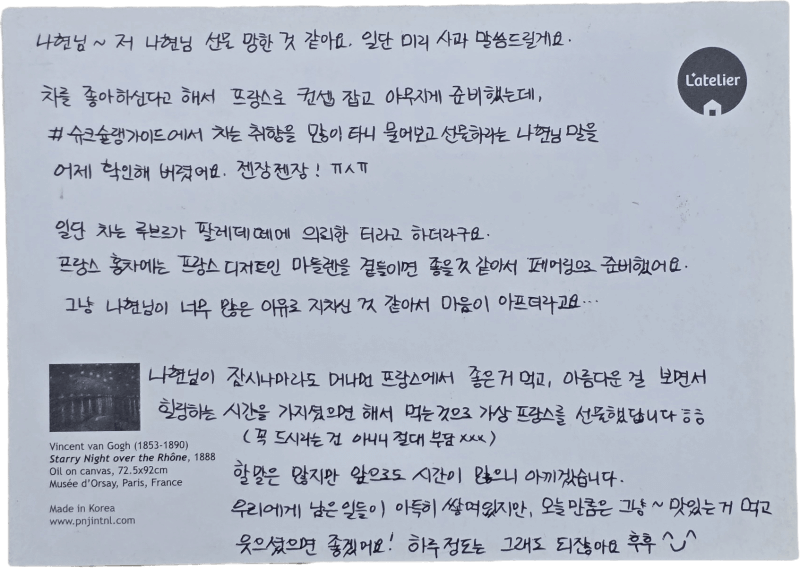 나현님~ 저 나현님 선물 망한 것 같아요. 일단 미리 사과 말씀드릴게요.
L'atelier
차를 좋아하신다고 해서 프랑스로 컨셉 잡고 야무지게 준비했는데,
#슈크슐랭가이드에서 차는 취향을 많이 타니 물어보고 선물하라는 나현님 말을
어제 확인해 버렸어요. 젠장젠장! ㅠㅅㅠ
일단 차는 루브르가 팔레데떼에 의뢰한 티라고 하더라구요.
프랑스 홍차에는 프랑스 디저트인 마들렌을 곁들이면 좋을 것 같아서 페어링으로 준비했어요.
그냥 나현님이 너무 많은 이유로 지치신 것 같아서 마음이 아프더라고요…
나현님이 잠시나마라도 머나먼 프랑스에서 좋은거 먹고, 아름다운 걸 보면서
힐링하는 시간을 가지셨으면 해서 먹는것으로 가상 프랑스를 선물했답니다 ㅎㅎ
(꼭 드시라는 건 아니니 절대 부담xxx)
할말은 많지만 앞으로도 시간이 많으니 아끼겠습니다.
우리에게 남은 일들이 아득히 쌓여있지만, 오늘만큼은 그냥~ 맛있는 거 먹고
웃으셨으면 좋겠어요! 하루정도는 그래도 되잖아요 후후 ^◡^
Vincent van Gogh (1853-1890)
Starry Night over the Rhône, 1888
Oil on canvas, 72.5x92cm
Musée d'Orsay, Paris, France
Made in Korea
www.pnjintnl.com